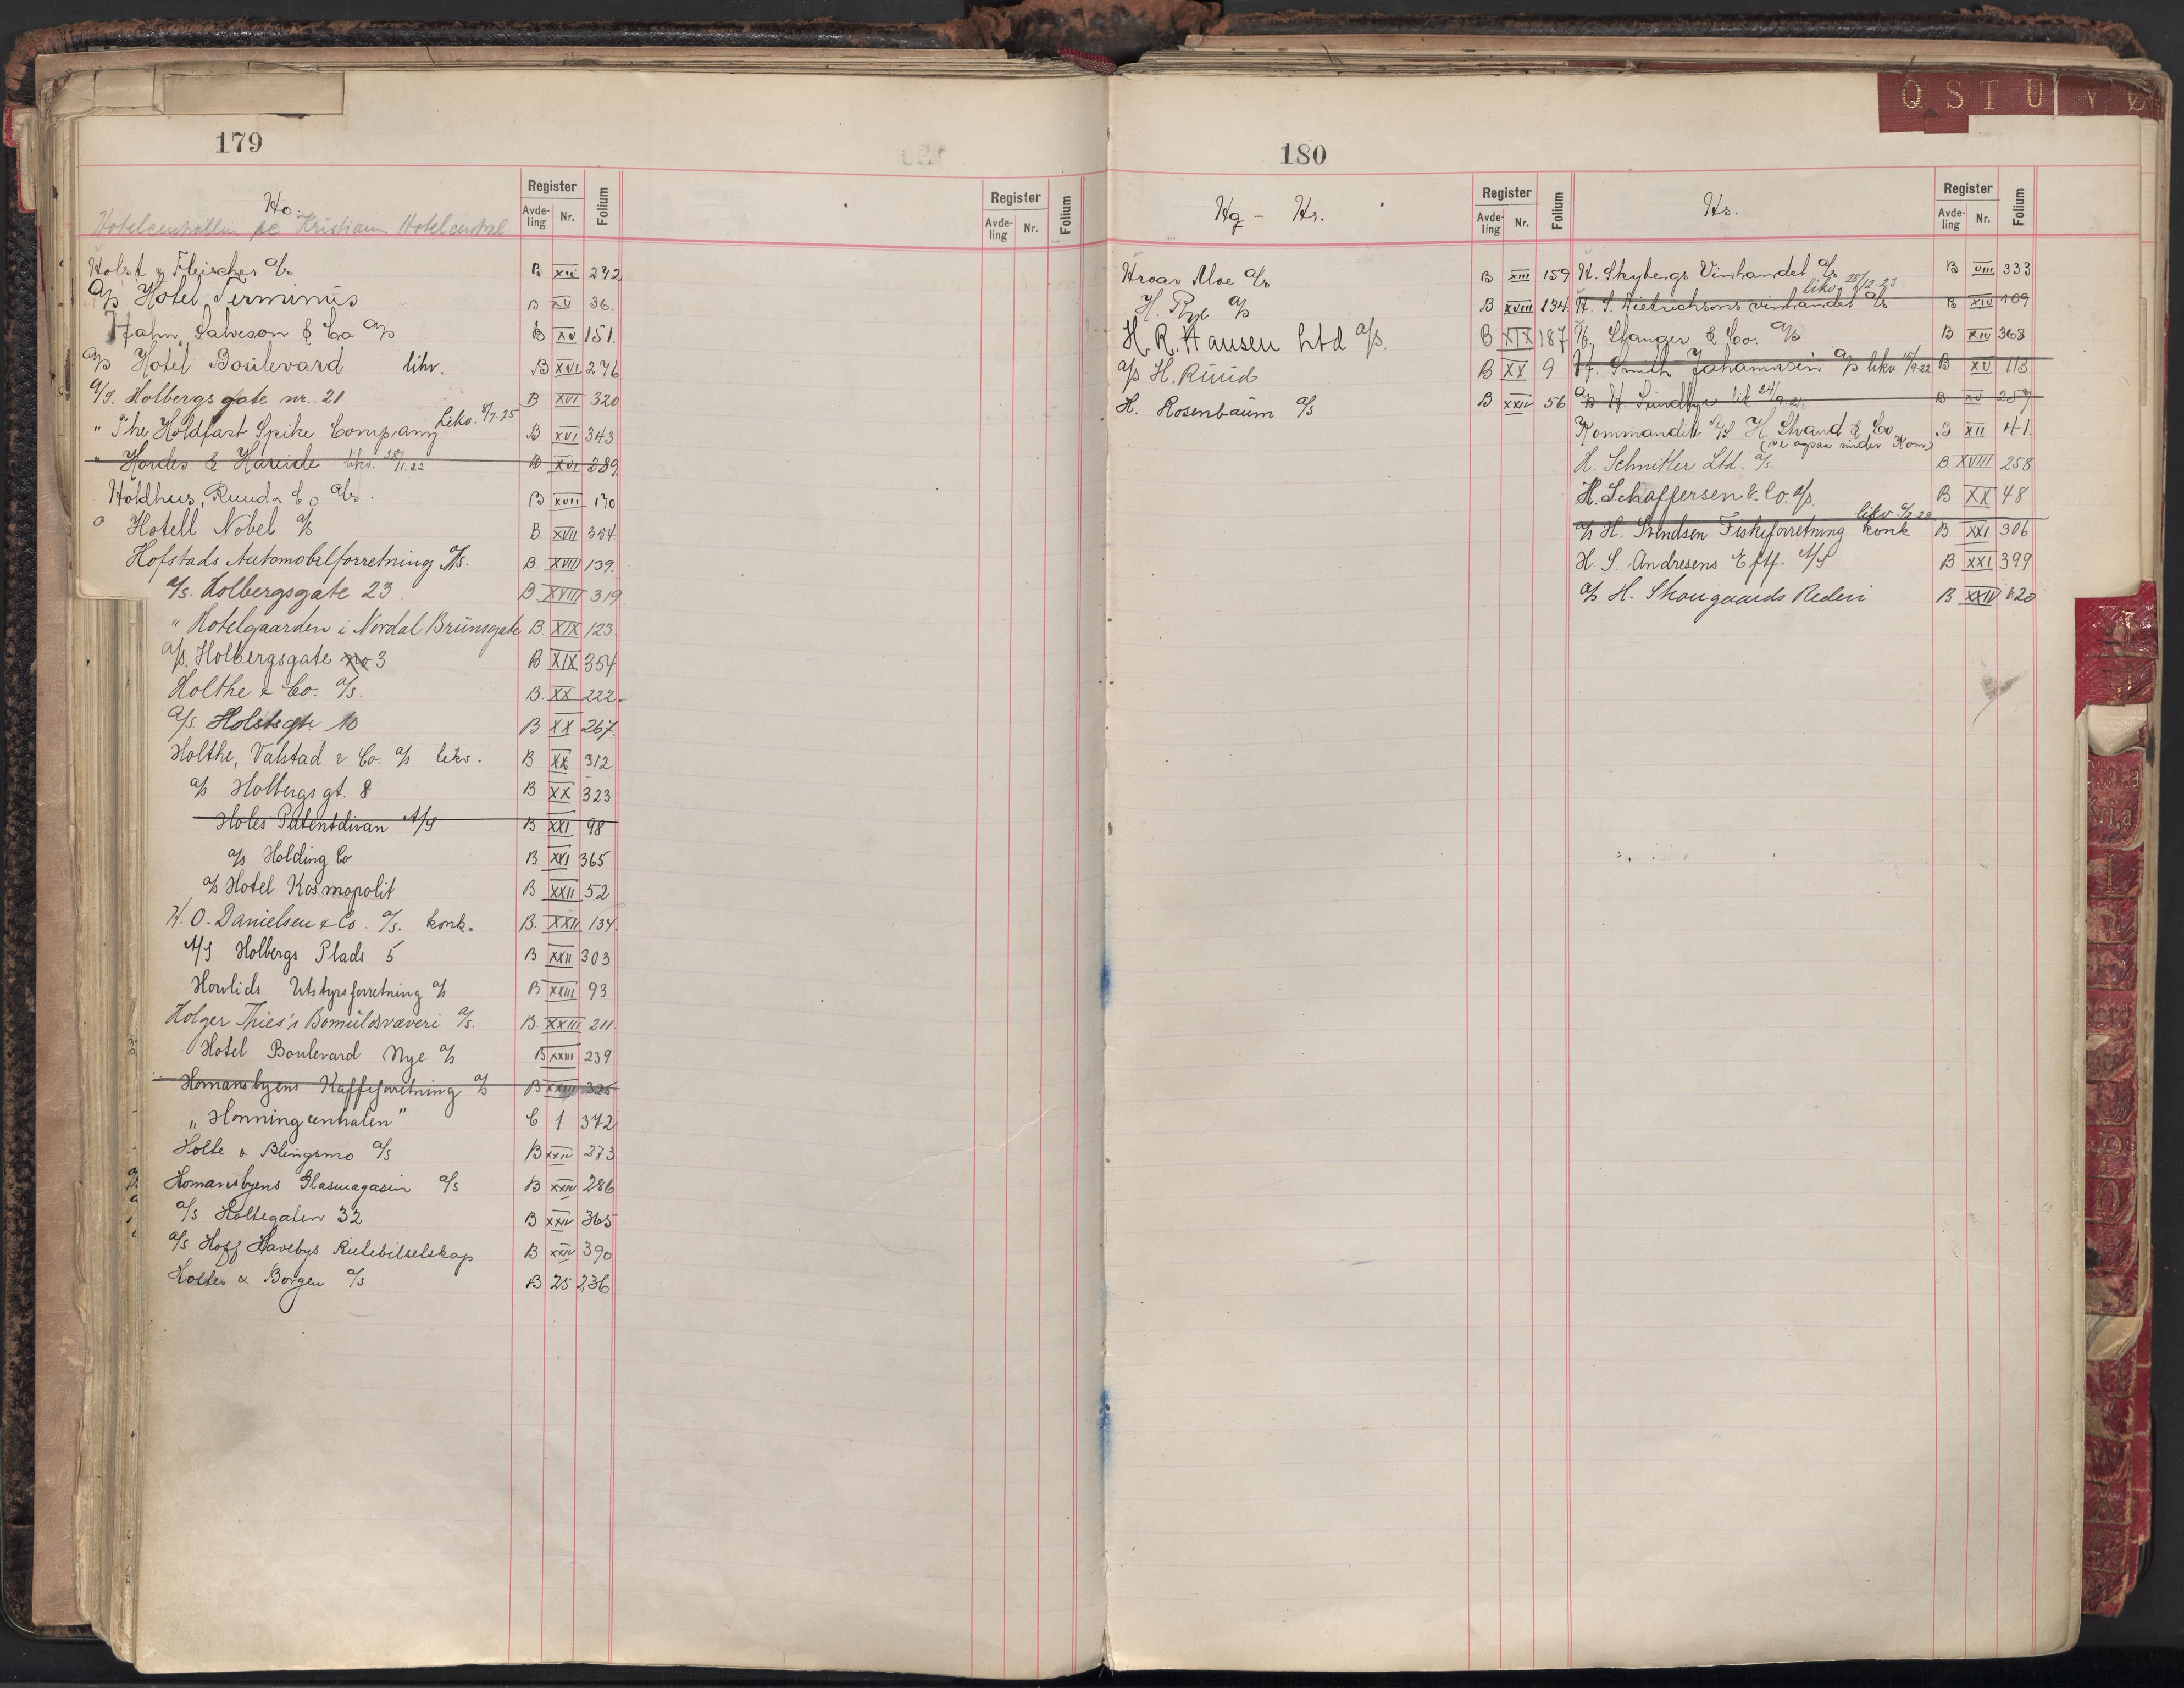 179
Ho.
Register
Avde-ling Nr. Folium
Hotelcentralen se Kristiania Hotelcentral.
Holst & Fleischer A/s B XIV 242
A/s Hotel Terminus B XV 36.
Hahn, Salveson & Co A/s B XV 151.
A/s Hotel Boulevard likv. B XVI 276
A/S. Holbergs gate nr. 21 B XVI 320
" The Holdfast Spike Company Likv. 8/7-25 B XVI 343
" Hordes & Hareide likv. 28/1.22 B XVI 389
Holdhus, Ruud & Co A/s. B XVII 170
Hotell Nobel A/s B. XVII 354.
Hofstads Automobilforretning A/S. B. XVIII 139.
A/S. Holbergsgate 23. B. XVIII 319
" Hotelgaarden i Nordal Brunsgate B. XIX 123.
A/S. Holbergsgate no 3 B XIX 354
Holthe & Co. A/S. B. XX 222.
A/S Holstsgt. 10 B XX 267.
Holthe, Valstad & Co. A/s likv. B XX 312
A/s Holbergs gt. 8 B XX 323
Holes Patentdivan A/S B XXI 98
A/s Holding Co B XXI 365
A/s Hotel Kosmopolit B XXII 52
H. O. Danielsen & Co. A/S. konk. B. XXII 134.
A/S Holbergs Plads 5 B XXII 303
Hovlids Utstyrsforretning A/s B XXIII 93
Holger Thies's Bomuldsvæveri A/S. B. XXIII 211.
Hotel Boulevard Nye A/s B XXIII 239
Homansbyens Kaffeforretning A/s B XXIII 325
"Honningcentralen" C 1 372
Holte & Blingsmo A/s B XXIV 273
Homansbyens Glasmagasin A/s B XXIV 286
A/s Holtegaten 32 B XXIV 365
A/s Hoff Havebys Rutebilselskap B XXIV 390
Holter & Borgen A/s B 25 236
Register
Avde-ling Nr. Folium
180
Hq - Hr.
Register
Avde-ling Nr. Folium
Hroar Moe A/s B XIII 159
H. Rye A/s B XVIII 134.
H. R. Hansen Ltd A/s. B XIX 187
A/s H. Ruud B XX 9
H. Rosenbaum A/s B XXIV 56
Hs.
Register
Avde-ling Nr. Folium
H. Skybergs Vinhandel A/s B VIII 333
likv. 28/12.23.
H. S. Dietrichsons vinhandel A/s B XIV 109
H. Stanger & Co. A/s B XIV 368
H. Smith Johannsen A/s likv. 15/9.22 B XV 113
A/s H. Sundbye lik 24/9.21 B XV 257
Kommandit A/S. H. Strand & Co B XII 41.
(se ogsaa under Kom)
H. Schnitler Ltd. A/s. B XVIII 258
H. Schaffersen & Co. A/s. B XX 48
A/s H. Svendsen Fiskeforretning konk B XXI 306
H. S. Andresens Eftf. A/S B XXI 399
A/s H. Skougaards Rederi B XXIV 120
Q S T U V Ø